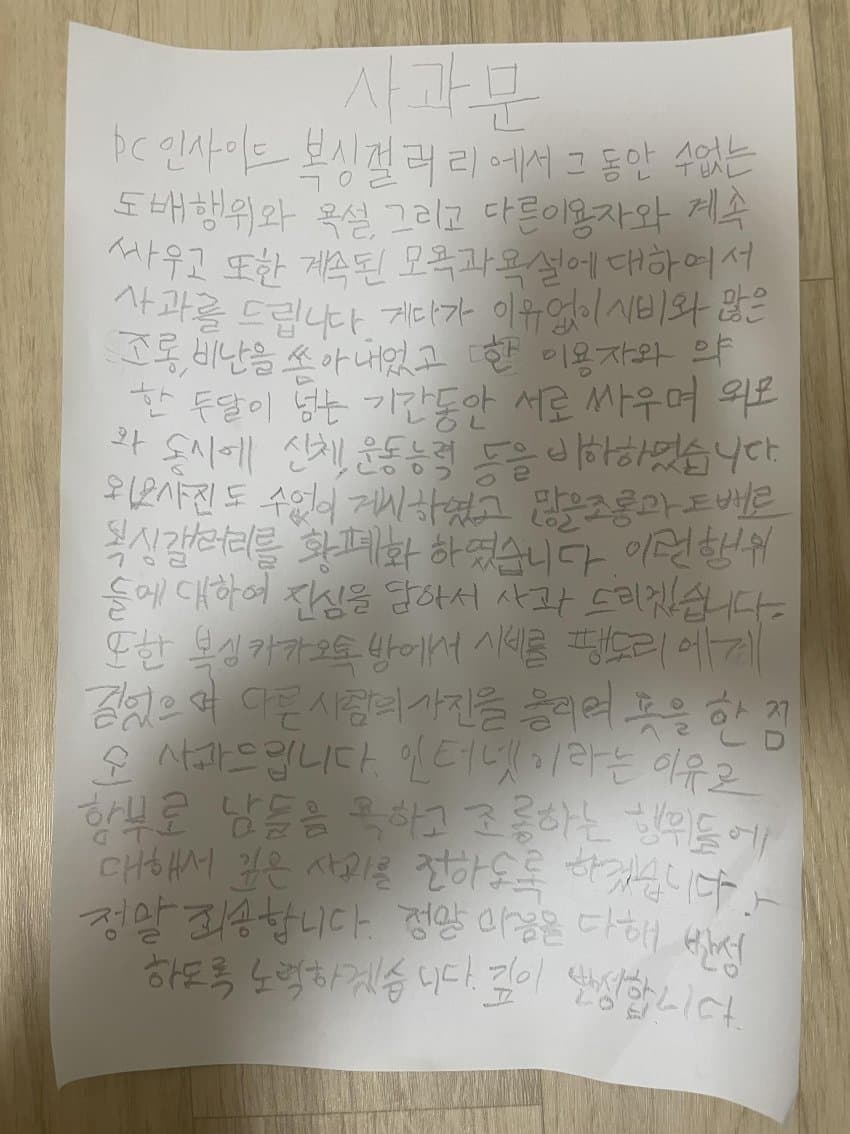 사과문
DC인사이드 복싱갤러리에서 그동안 수없는
도배행위와 욕설, 그리고 다른이용자와 계속
싸우고 또한 계속된 모욕과욕설에대하여서
사과를 드립니다. 게다가 이유없이시비와 많은
조롱,비난을 쏨아내었고 한 이용자와 약
한 두달이 넘는 기간동안 서로 싸우며 외모
와 동시에 신체,운동능력 등을 비하하였습니다.
외모사진도 수없이 게시하였고 많은조롱과 도배로
복싱갤러리를 황폐화 하였습니다. 이런행위
들에 대하여 진심을 담아서 사과 드리겠습니다.
또한 복싱카카오톡방에서 시비를 팽도리에게
걸었으며 다른사람의사진을 올리며 욕을 한 점
도 사과드립니다. 인터넷이라는 이유로
함부로 남들을 욕하고 조롱하는 행위들에
대해서 깊은 사과를 전하도록 하겠습니다.
정말 죄송합니다. 정말 마음을 다해 반성
하도록 노력하겠습니다. 깊이 반성합니다.